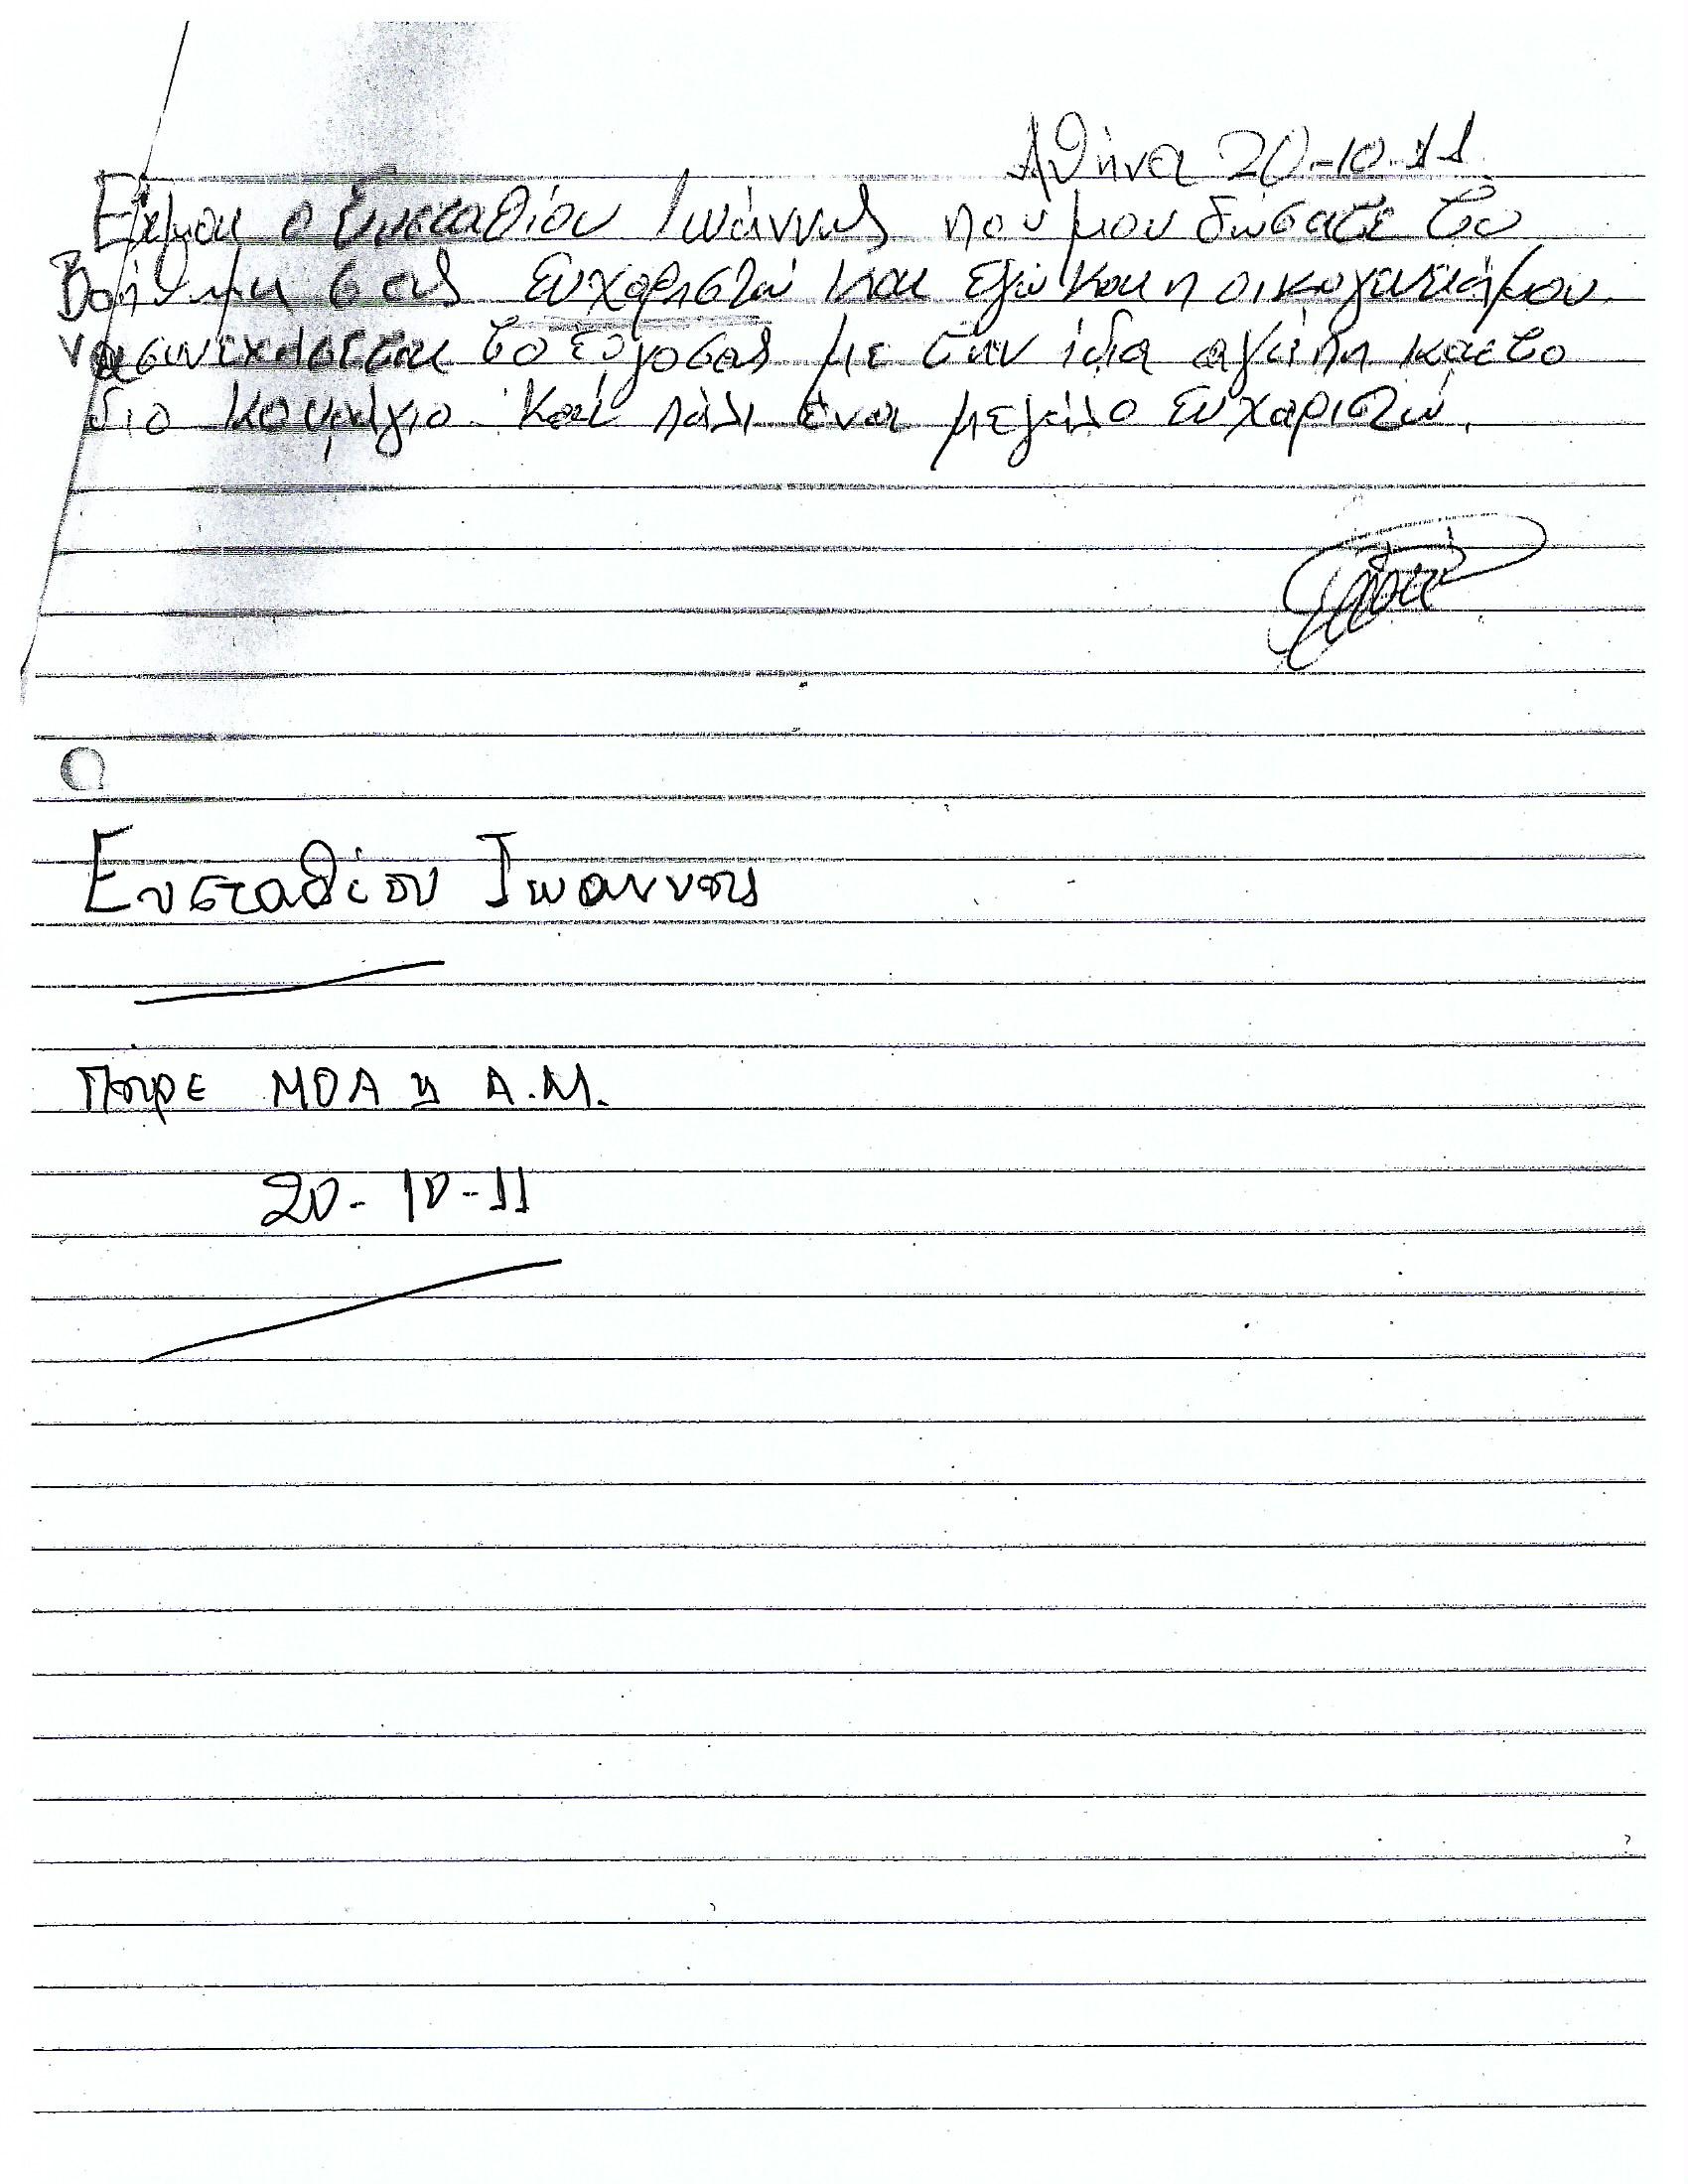 Αθήνα 20-10-11
Είμαι ο Ευσταθίου Ιωάννης που μου δώσατε το
Βοήθημα σας ευχαριστώ και εγώ και η οικογενειά μου
να συνεχίσεται το έργο σας με την ίδια αγάπη και το
διο κουράγιο. Καί πάλι ένα μεγάλο ευχαριστώ.
Ευσταθίου Ιωαννης
Πηρε ΜΟΑ η Α.Μ.
20-10-11